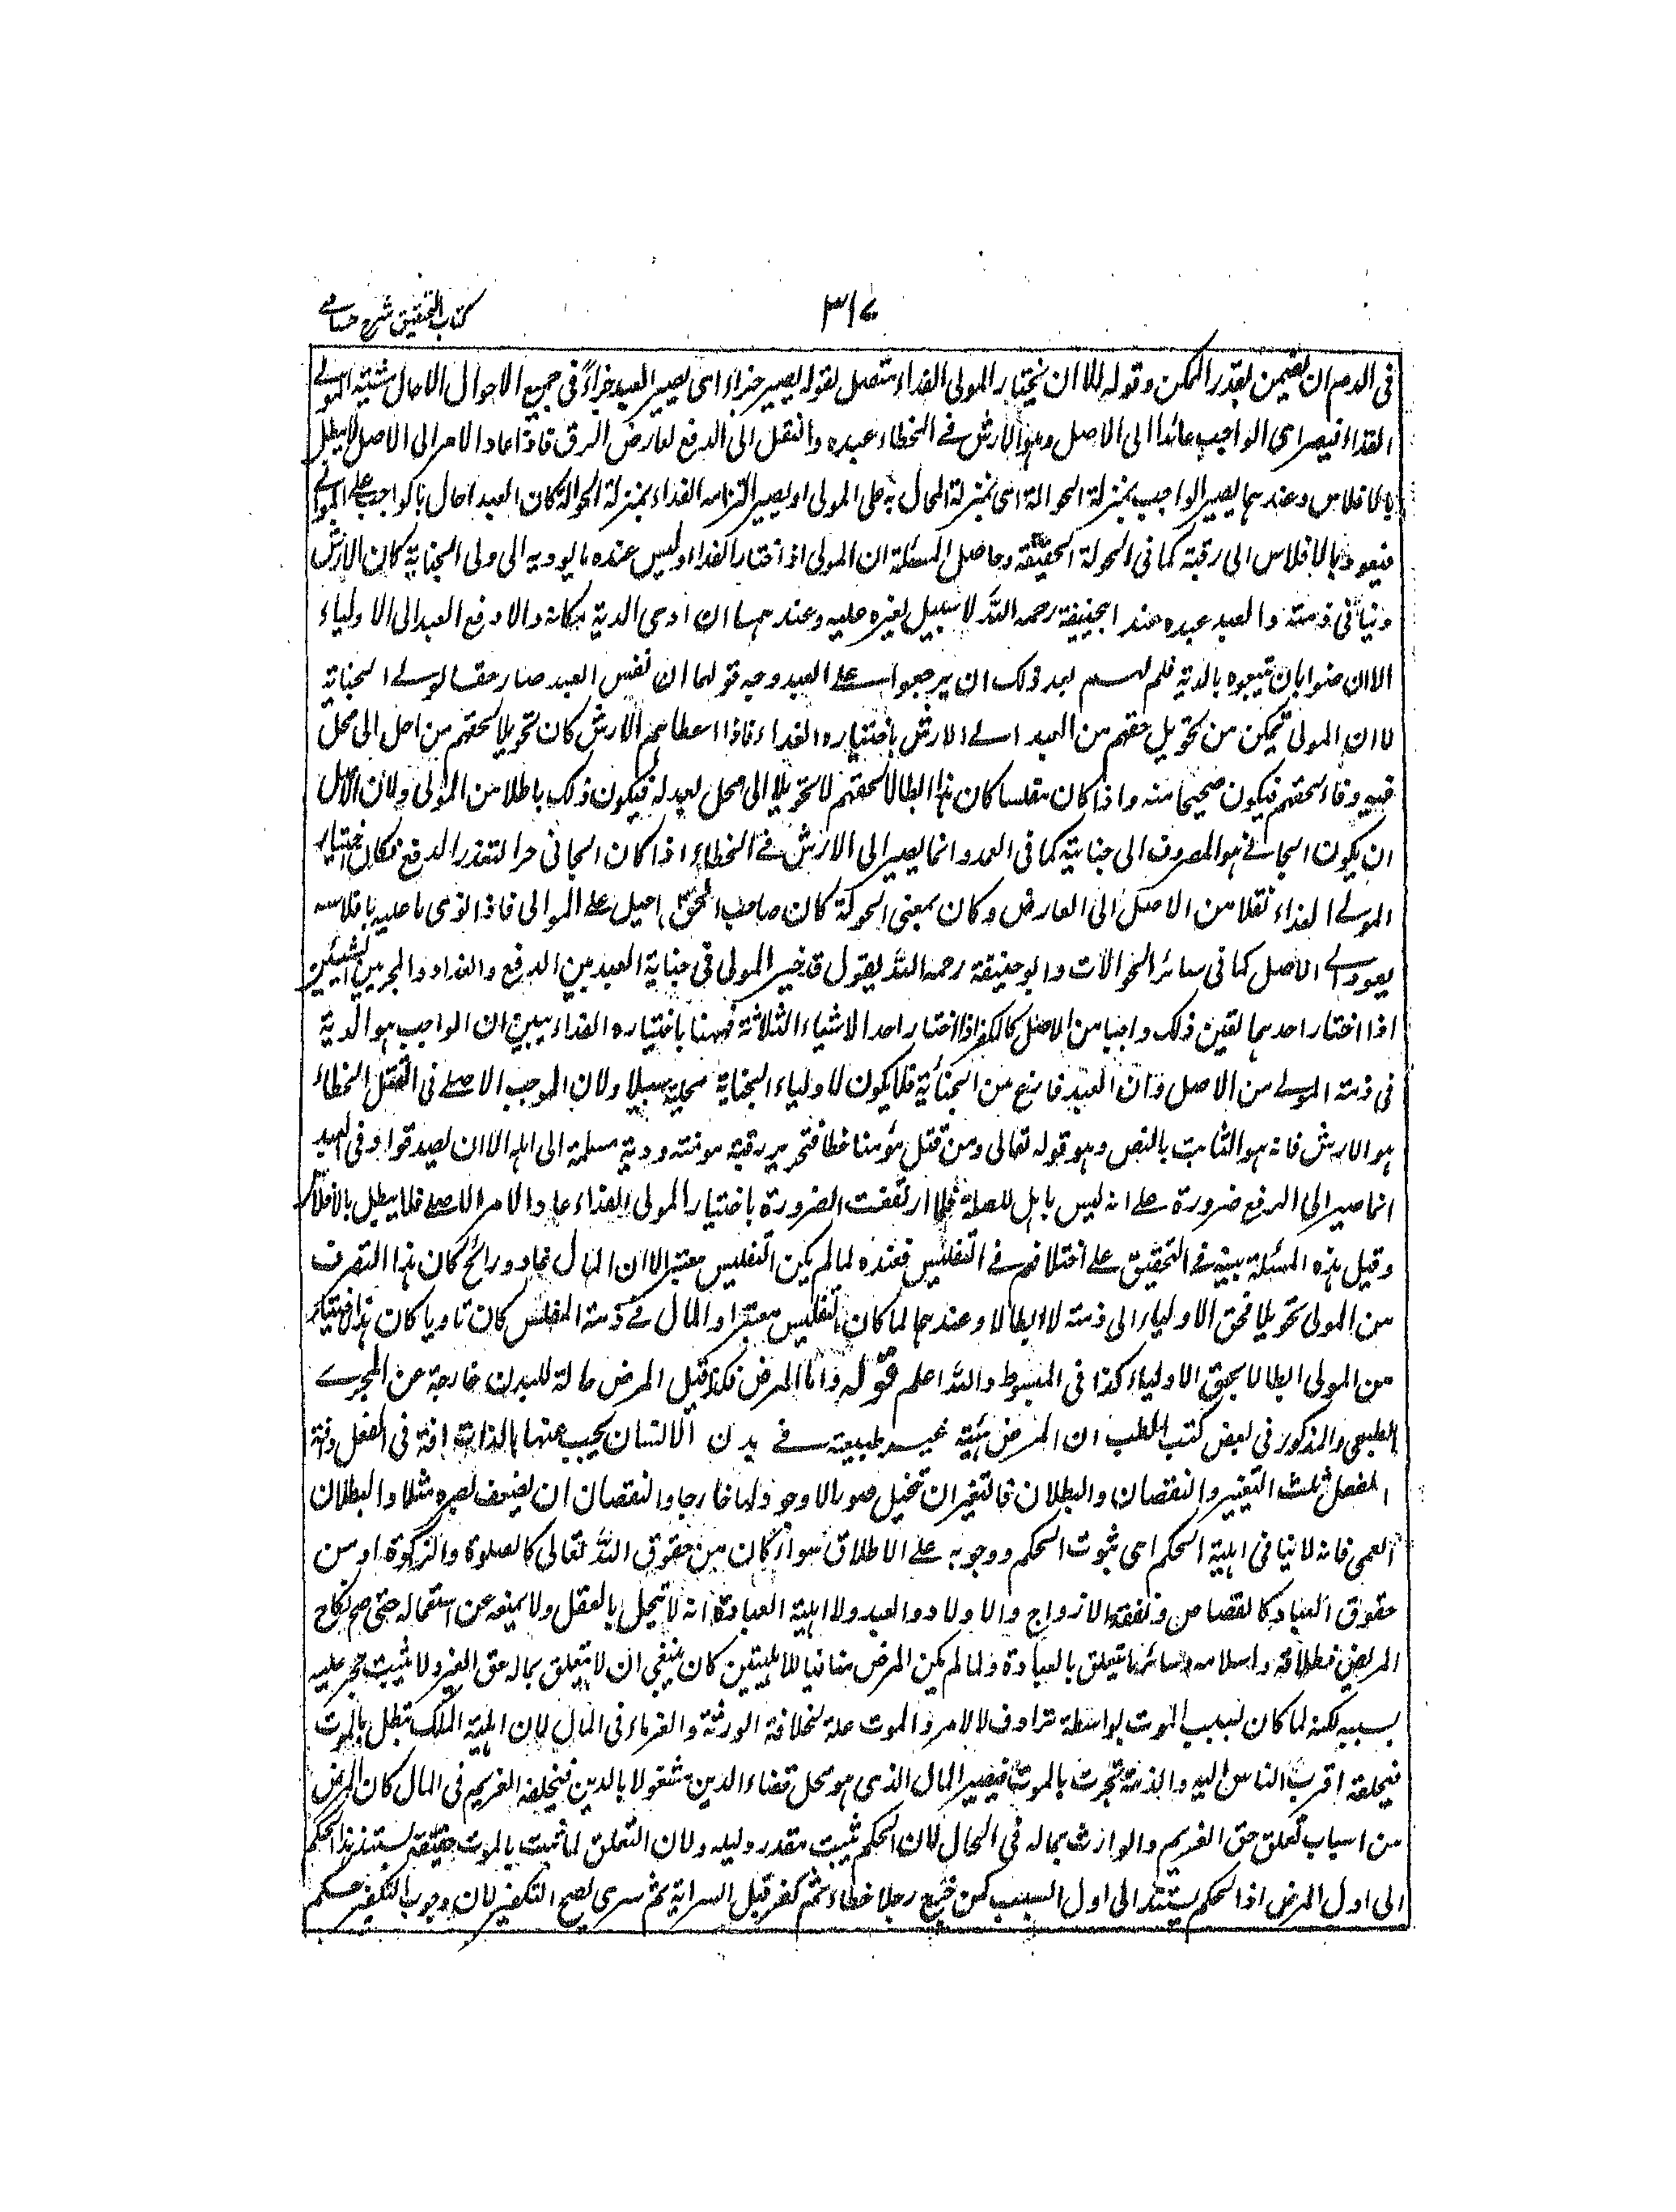 كتاب التحقيق شرح حسامي
٣١٧
في الدم ان يضمن بقدر الممكن وقوله الا ان يختار المولى الفداء متصل بقوله يصير جزاء اى يصير العبد جزاءً في جميع الاحوال الا حال مشيته المولى
الفداء فيصير اى الواجب عائدا الى الاصل وهو الارش في الخطاء عبده والنقل الى الدفع لعارض الرق فاذا عاد الامر الى الاصل لا يبطل
بالافلاس وعندهما يصير الواجب بمنزلة الحوالة اى بمنزلة المحال به على المولى او يصير التزامه الفداء بمنزلة الحوالة كان العبد احال بالواجب على المولى
فيعود بالافلاس الى رقبته كما في الحوالة الحقيقة وحاصل المسئلة ان المولى اذا اختار الفداء وليس عنده ما يوديه الى ولى الجناية كان الارش
دينا في ذمته والعبد عبده عند ابيحنيفة رحمه الله لا سبيل لغيره عليه وعندهما ان ادى الدية مكانه والا دفع العبد الى الاولياء
الا ان رضوا بان يتبعوه بالدية فلم لهم بعد ذلك ان يرجعوا على العبد وجه قولهما ان نفس العبد صار حقا لولى الجناية
الا ان المولى يتمكن من تحويل حقهم من العبد الى الارش باختياره الفداء فاذا اعطاهم الارش كان تحويلا لحقهم من محل الى محل
فيه وفاء بحقهم فيكون صحيحا منه واذا كان مفلسا كان هذا ابطالا لحقهم لا تحويلا الى محل يعدله فيكون ذلك باطلا من المولى ولان الاصل
ان يكون الجاني هو المصروف الى جنايته كما في العمد وانما يصير الى الارش في الخطاء اذا كان الجاني حرا لتعذر الدفع فكان اختيار
المولى الفداء نقلا من الاصل الى العارض وكان بمعنى الحوالة كان صاحب الحق احيل على المولى فاذا توى ما عليه بافلاسه
يعود الى الاصل كما في سائر الحوالات وابو حنيفة رحمه الله يقول قد خير المولى في جناية العبد بين الدفع والفداء والمخير بين الشيئين
اذا اختار احدهما تعين ذلك واجبا من الاصل كالمكفر اذا اختار احد الاشياء الثلاثة فههنا باختياره الفداء يبين ان الواجب هو الدية
في ذمة المولى من الاصل وان العبد فارغ من الجناية فلا يكون لاولياء الجناية عليه سبيلا ولان الموجب الاصلي في القتل الخطاء
هو الارش فانه هو الثابت بالنص وهو قوله تعالى ومن قتل مؤمنا خطأ فتحرير رقبة مومنة ودية مسلمة الى اهله الا ان يصدقوا وفي العبد
انما صير الى الدفع ضرورة على انه ليس باهل للصلة فلما ارتفعت الضرورة باختيار المولى الفداء عاد الامر الى الاصلي فلا يبطل بالافلاس
وقيل هذه المسئلة مبنية في التحقيق على اختلافهم في التفليس فعنده لما لم يكن التفليس معتبرا لان المال غاد ورائح كان هذا التصرف
من المولى تحويلا لحق الاولياء الى ذمته لا ابطالا وعندهما لما كان التفليس معتبرا والمال في ذمة المفلس كان تاويا كان هذا الاختيار
من المولى ابطالا بحق الاولياء كذا في المبسوط والله اعلم قوله واما المرض فكذا قيل المرض حالة للبدن خارجة عن المجرى
الطبعي والمذكور في بعض كتب الطب ان المرض هيئة غير طبيعية في بدن الانسان يجب عنها بالذات افة في الفعل وافة
الفعل ثلث التغير والنقصان والبطلان فالتغير ان تخيل صورا لا وجود لها خارجا والنقصان ان يضعف بصره مثلا والبطلان
العمى فانه لا ينافي اهلية الحكم اى ثبوت الحكم ووجوبه على الاطلاق سواء كان من حقوق الله تعالى كالصلوة والزكوة او من
حقوق العباد كالقصاص ونفقة الازواج والاولاد والعبد ولا اهلية العبادة انه لا يخل بالعقل ولا يمنعه عن استعماله حتى صح نكاح
المريض وطلاقه واسلامه وسائر ما يتعلق بالعبادة ولما لم يكن المرض منافيا للاهليتين كان ينبغي ان لا يتعلق بماله حق الغير ولا يثبت حجر عليه
بسببه لكنه لما كان سبب الموت بواسطة ترادف الالام والموت علة لخلافة الورثة والغرماء في المال لان اهلية الملك تبطل بالموت
فيخلفه اقرب الناس اليه والذمة تخرب بالموت فيصير المال الذى هو محل قضاء الدين مشغولا بالدين فيخلفه الغريم في المال كان المرض
من اسباب تعلق حق الغريم والوارث بماله في الحال لان الحكم يثبت بقدر دليله ولان التعلق لما ثبت بالموت حقيقة يستند هذا الحكم
الى اول المرض اذ الحكم يستند الى اول السبب كمن جرح رجلا خطاء ثم كفر قبل السراية ثم سرى يصح التكفير لان وجوب التكفير حكم